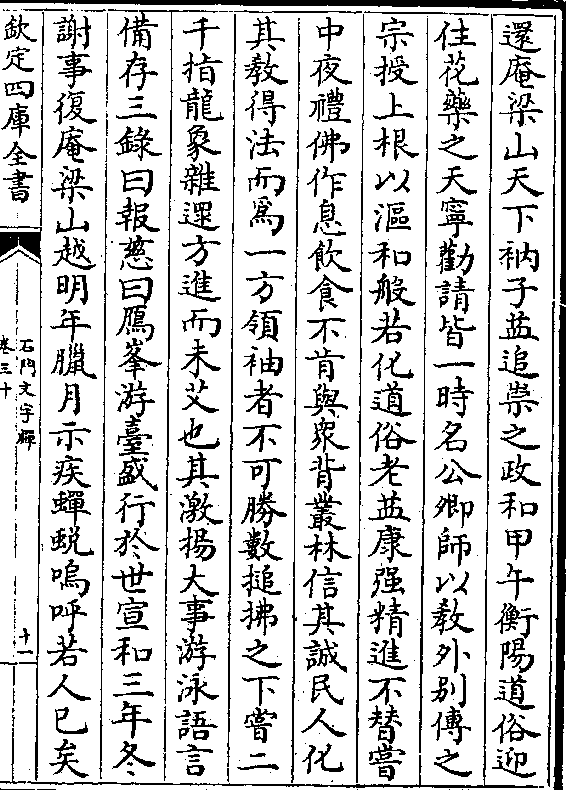 還庵梁山天下衲子益追崇之政和甲午衡陽道俗迎
住花藥之天寧勸請皆一時名公卿師以教外别傳之
宗授上根以漚和般若化道俗老益康强精進不替嘗
中夜禮佛作息飲食不肯與衆背叢林信其誠民人化
其教得法而爲一方領袖者不可勝數搥拂之下嘗二
千指龍象雜還方進而未艾也其激揚大事游泳語言
備存三錄曰報慈曰鴈峯游臺盛行於世宣和三年冬
謝事復庵梁山越明年臘月示疾蟬蛻嗚呼若人已矣
欽定四庫全書
石門文字禪
卷三十
十一